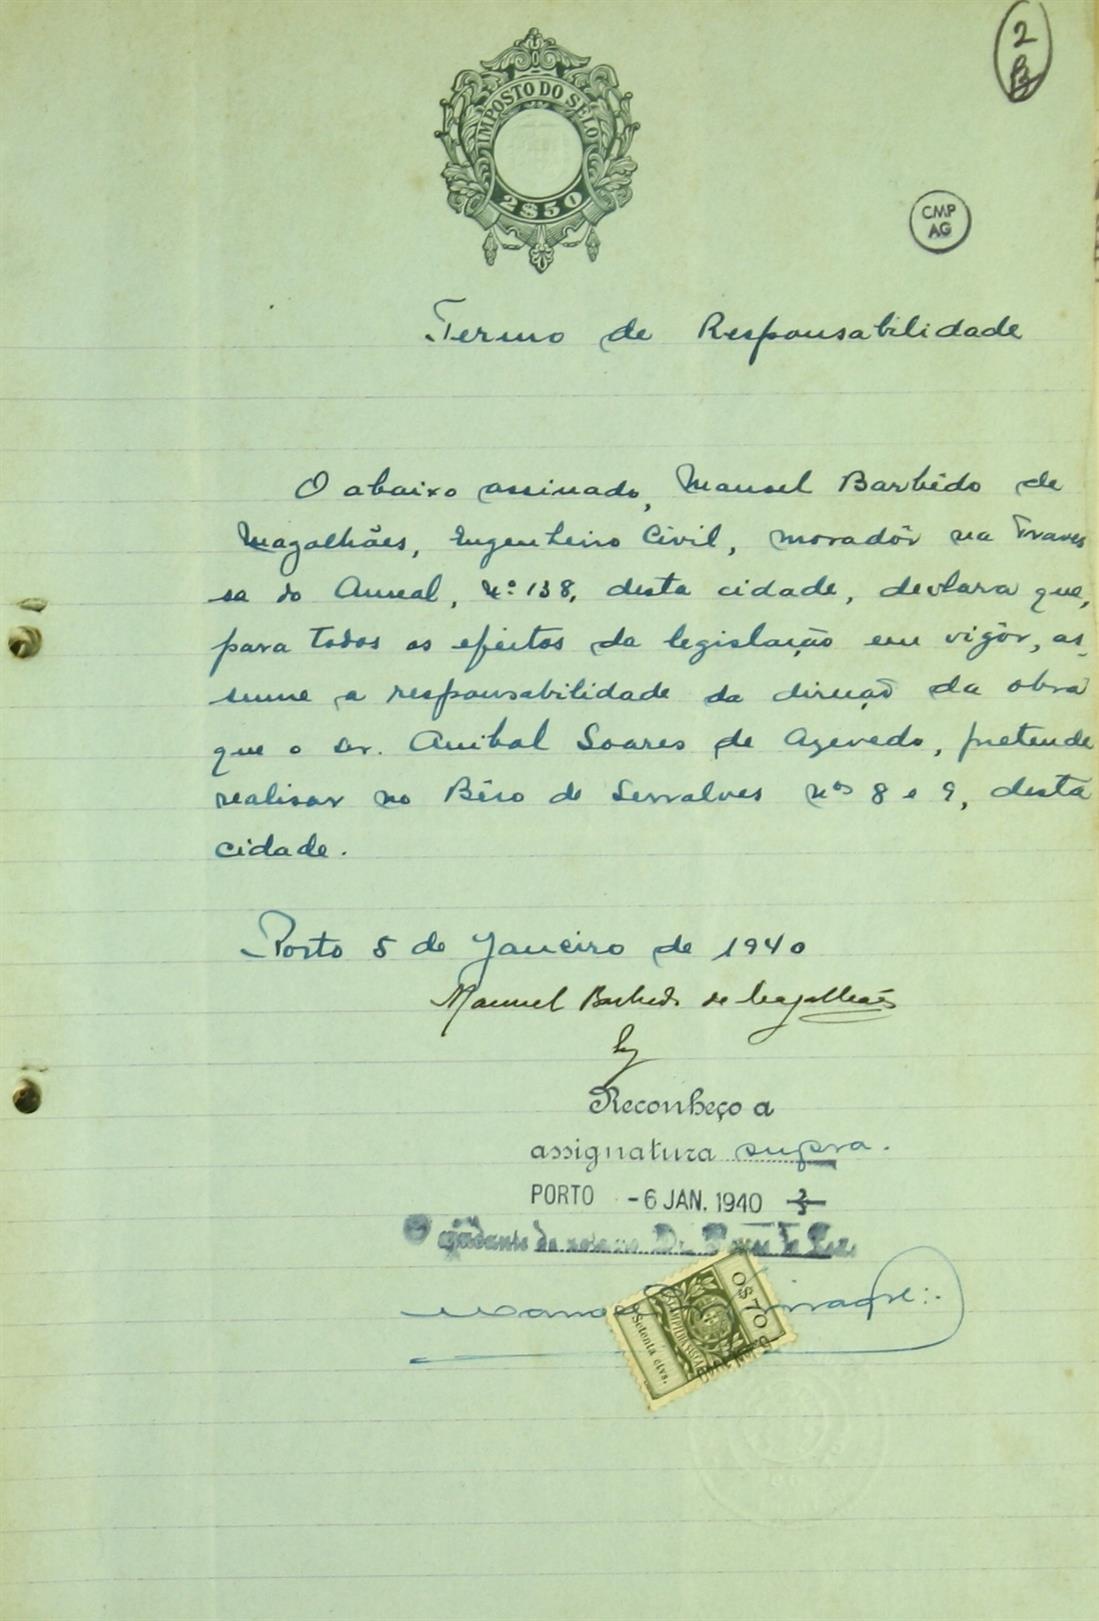 2
IMPOSTO DO SELO
2$50
CMP
AG
Termo de Responsabilidade
O abaixo assinado, Manuel Barbêdo de
Magalhães, Engenheiro Civil, moradôr na Traves
sa do Ameal, Nº 138, desta cidade, declara que,
para todos os efeitos da legislação em vigôr, as-
sume a responsabilidade da direção da obra
que o sr. Anibal Soares de Azevedo, pretende
realisar no Bêco de Serralves nos 8 e 9, desta
cidade.
Porto 5 de Janeiro de 1940
Manuel Barbedo de Magalhães
Reconheço a
assignatura supra.
PORTO -6 JAN. 1940
O ajudante do notario Dr.
0$70
Setenta ctvs.